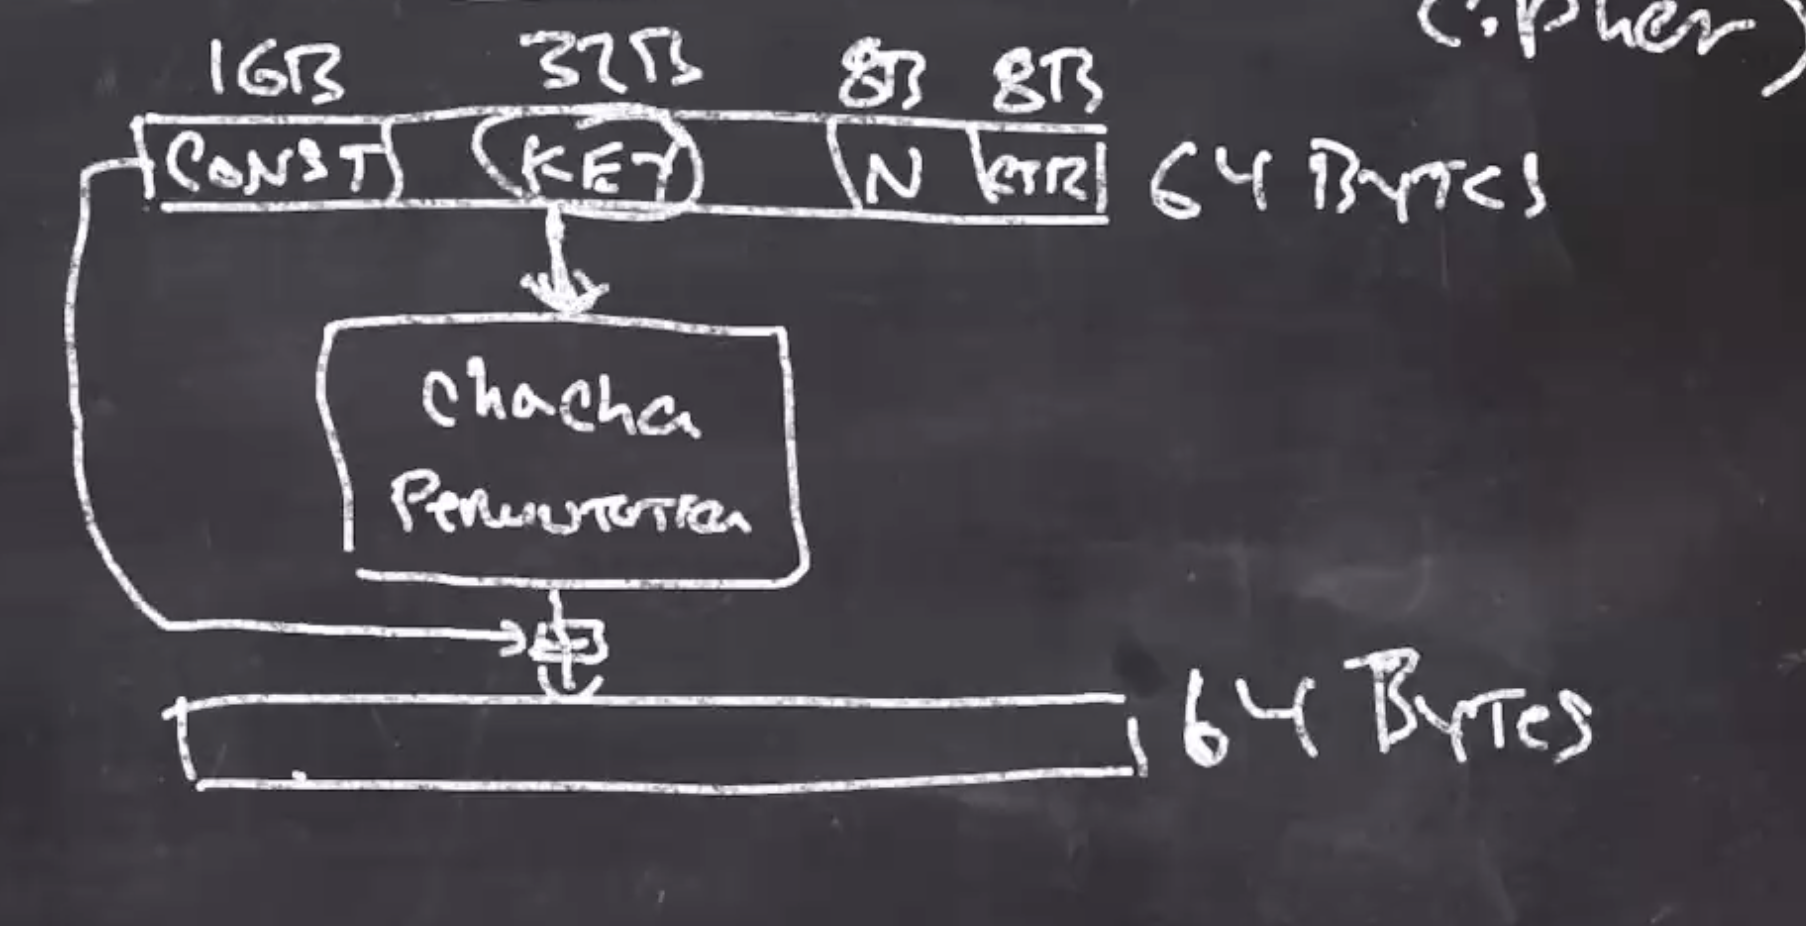 cipher)
16B 32B 8B 8B
CONST KEY N CTR 64 Bytes
chacha
Permutation
64 Bytes